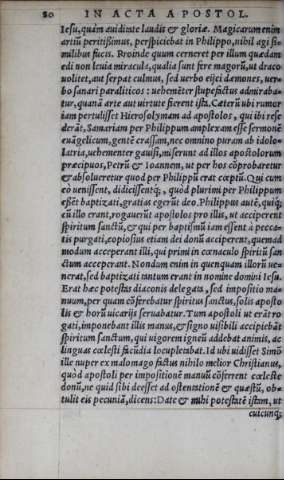 80 IN ACTA APOSTOL.
Iesu, quàm auidiute laudis & gloriæ. Magicarum enim
artiũ peritißimus, perspiciebat in Philippo, nihil agi si-
milibus fucis. Proinde quum cerneret per illum quædam
edi non leuia miracula, qualia sunt fere magorũ, ut draco
uolitet, aut serpat culmus, sed uerbo eijci dæmones, uer-
bo sanari paraliticos : uehemẽter stupefactus admiraba-
tur, quanã arte aut uirtute fierent ista. Cæterũ ubi rumor
iam pertulisset Hierosolymam ad apostolos, qui ibi rese
derãt, Samariam per Philippum amplexam esse sermonẽ
euãgelicum, gentẽ crassam, nec omnino puram ab idolo-
latria, uehementer gauisi, miserunt ad illos apostolorum
præcipuos, Petrũ & Ioannem, ut per hos cõprobaretur
& absolueretur quod per Philippũ erat cœptũ. Qui cum
eò uenissent, didicissentq́;, quòd plurimi per Philippum
essẽt baptizati, gratias egerũt deo. Philippus autẽ, quiq́;
cũ illo erant, rogauerũt apostolos pro illis, ut acciperent
spiritum sanctũ, & qui per baptismũ iam essent à pecca-
tis purgati, copiosius etiam dei donũ acciperent, quemad
modum acceperant illi, qui primi in cœnaculo spiritũ san
ctum acceperant. Nondum enim in quenquam illorũ ue-
nerat, sed baptizati tantum erant in nomine domini Iesu.
Erat hæc potestas diaconis delegata, sed impositio ma-
nuum, per quam cõferebatur spiritus sanctus, solis aposto
lis & horũ uicarijs seruabatur. Tum apostoli ut erãt ro-
gati, imponebant illis manus, & signo uisibili accipiebãt
spiritum sanctum, qui uigorem igneũ addebat animis, ac
linguas cœlesti facũdia locupletabat. Id ubi uidisset Simõ
ille nuper ex malomago factus nihilo melior Christianus,
quòd apostoli per impositionẽ manuũ cõferrent cœleste
donũ, ne quid sibi deesset ad ostentationẽ & quæstũ, ob-
tulit eis pecuniã, dicens: Date & mihi potestatẽ istam, ut
cuicunq;